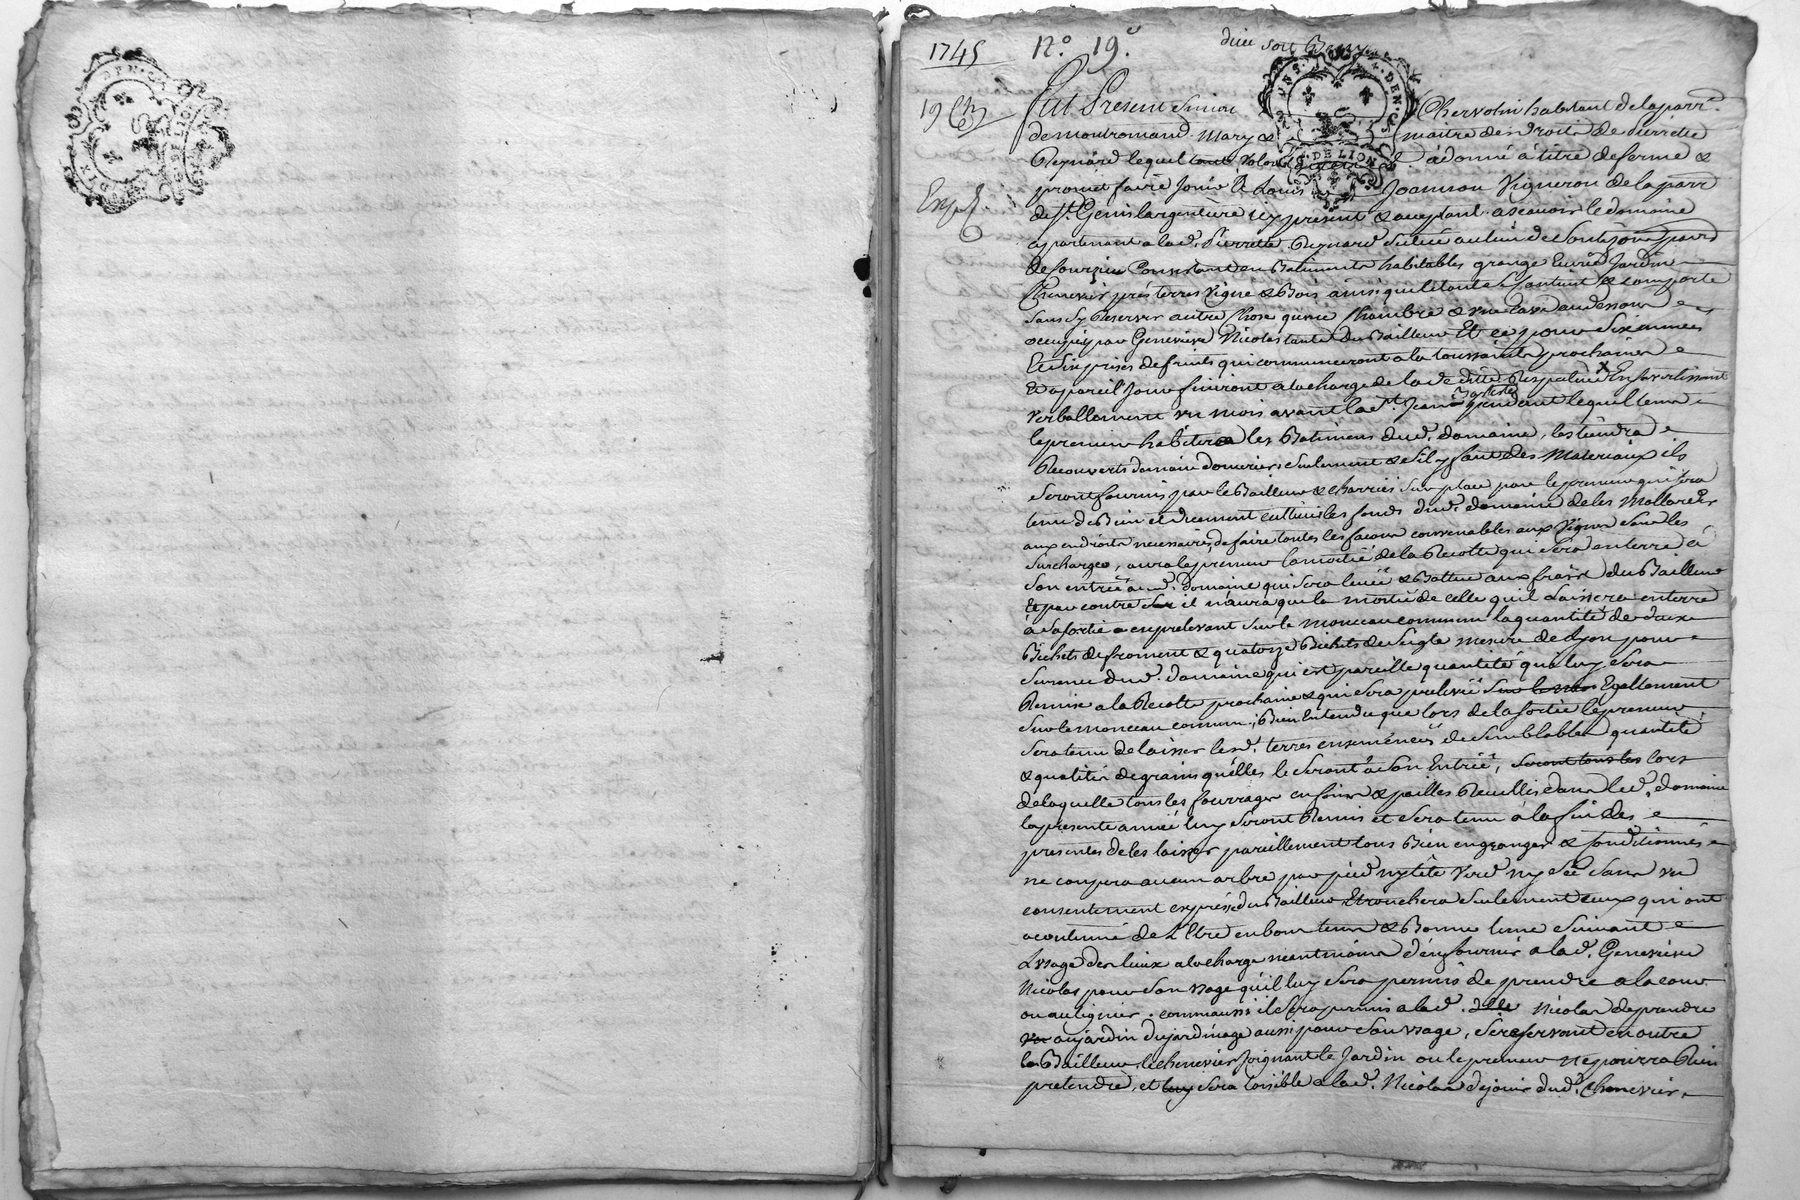 1745 N.o 19.
19
Fut Present Simon Chervolin habitant de la parr.
de montromand. Mary & maitre des Droits de pierrette
Reynard lequel à donné à titre de ferme &
promet faire Jouir à Louis Joannon Vigneron de la parr
de St. Genis largentière icy present & acceptant. a scavoir le domaine
apartenant a lad. Pierrette Reynard Scitué au lieu de parr
de Consistant en Batiments habitables grange Ecurie Jardin
Chenevier près terres Vigne & Bois ainsi que le tout se Contient & comporte
sans sy Reserver autre Chose qu'une Chambre & une Cave au dessous
occupés par Genevieve Nicolas tante du Bailleur Et ce pour Six années
Et Six prises de fruits qui commenceront a la toussaints prochaine
Et a pareil Jour finiront a la charge de En Savertissant
Verballement un mois avant la St. Jean Baptiste pendant lequel tems
le preneur habitera les Batimens dud. domaine, les tiendra
Recouverts de main douvriers Seulement & Sil y faut des Materiaux ils
Seront fournis par le Bailleur & charriés Sur place par le preneur qui Sera
tenu de Bien et duement cultiver les fonds dud. domaine de les
aux endroits necessaires, de faire toutes les façons convenables aux Vignes Sans les
Surcharger, aura le preneur la moitié de la Recolte qui Sera en terre à
Son entrée aud. Domaine qui Sera levée & Battue aux fraix du Bailleur
Et par contre il n'aura que la moitié de celle qu'il Laissera en terre
à Sa Sortie en prelevant Sur le monceau commun la quantité de
Bichets de froment & quatorze Bichets de Seigle mesure de Lyon pour
Semence dud. Domaine qui est pareille quantité qui luy Sera
Remise a la Recolte prochaine & qui Sera prelevée Egallement
Sur le monceau commun; Bien Entendu que lors de la Sortie le preneur
Sera tenu de laisser lesd. terres ensemencées de Semblables quantité
& qualités de grains qu'elles le Seront à Son Entrée, Seront tous les lors
de laquelle tous les fourrages en foins & pailles Recueillis dans led. domaine
la presente année luy Seront Remis et Sera tenu à la fin des
presentes de les laisser pareillement tous Bien engrangés & Conditionnés
ne coupera aucun arbre par pied ny tête Verd ny Sec Sans un
consentement exprès du Bailleur Et tronchera Seulement ceux qui ont
acoutumé de L'Etre en bon tems & Bonne lune Suivant
L'usage des lieux a la charge neantmoins d'en fournir a lad. Genevieve
Nicolas pour Son usage qu'il luy Sera permis de prendre a la cour
ou au ligner. comm aussi il Sera permis a lad. Nicolas de prendre
au jardin du jardinage aussi pour Son usage, Se reservant en outre
le Bailleur le chenevier Joignant le Jardin ou le preneur ne pourra Rien
pretendre, et Sera loisible a lad. Nicolas de jouir dud. Chenevier
G. DE LION